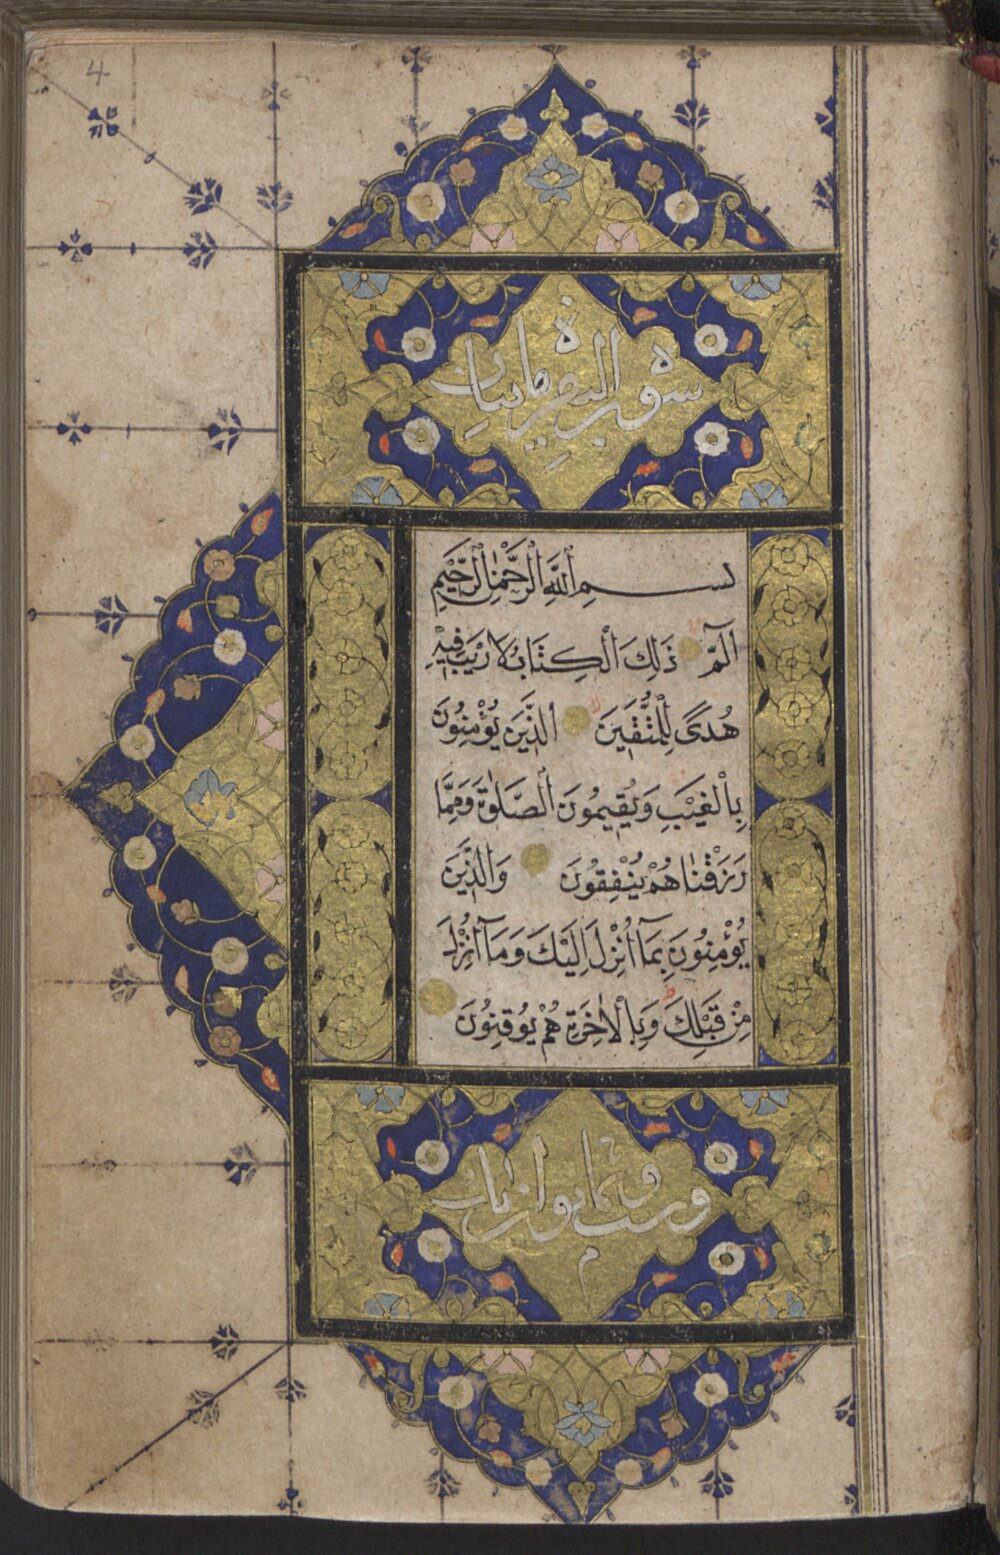 4
سورة البقرة مايتان
بسم الله الرحمن الرحيم
الٓمٓ ذَلِكَ الْكِتَابُ لَا رَيْبَ فِيْهِ
هُدًى لِلْمُتَّقِينَ الَّذِينَ يُؤْمِنُونَ
بِالْغَيْبِ وَيُقِيمُونَ الصَّلٰوةَ وَمِمَّا
رَزَقْنَاهُمْ يُنْفِقُونَ وَالَّذِينَ
يُؤْمِنُونَ بِمَآ اُنْزِلَ اِلَيْكَ وَمَآ اُنْزِلَ
مِنْ قَبْلِكَ وَبِالْاٰخِرَةِ هُمْ يُوقِنُونَ
وست وثمانون ايات